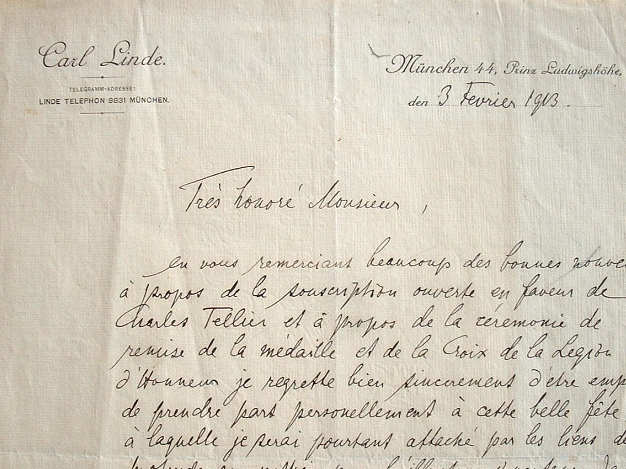 Carl Linde.
TELEGRAMM-ADRESSE:
LINDE TELEPHON 9831 MÜNCHEN.
München 44, Prinz Ludwigshöhe,
den 3 Fevrier 1913.
Très honoré Monsieur,
en vous remerciant beaucoup des bonnes
à propos de la souscription ouverte en faveur de
Charles Tellier et à propos de la cérémonie de
remise de la médaille et de la Croix de la Legion
d'Honneur je regrette bien sincerement d'être
de prendre part personellement à cette belle fête
à laquelle je serai pourtant attaché par les liens